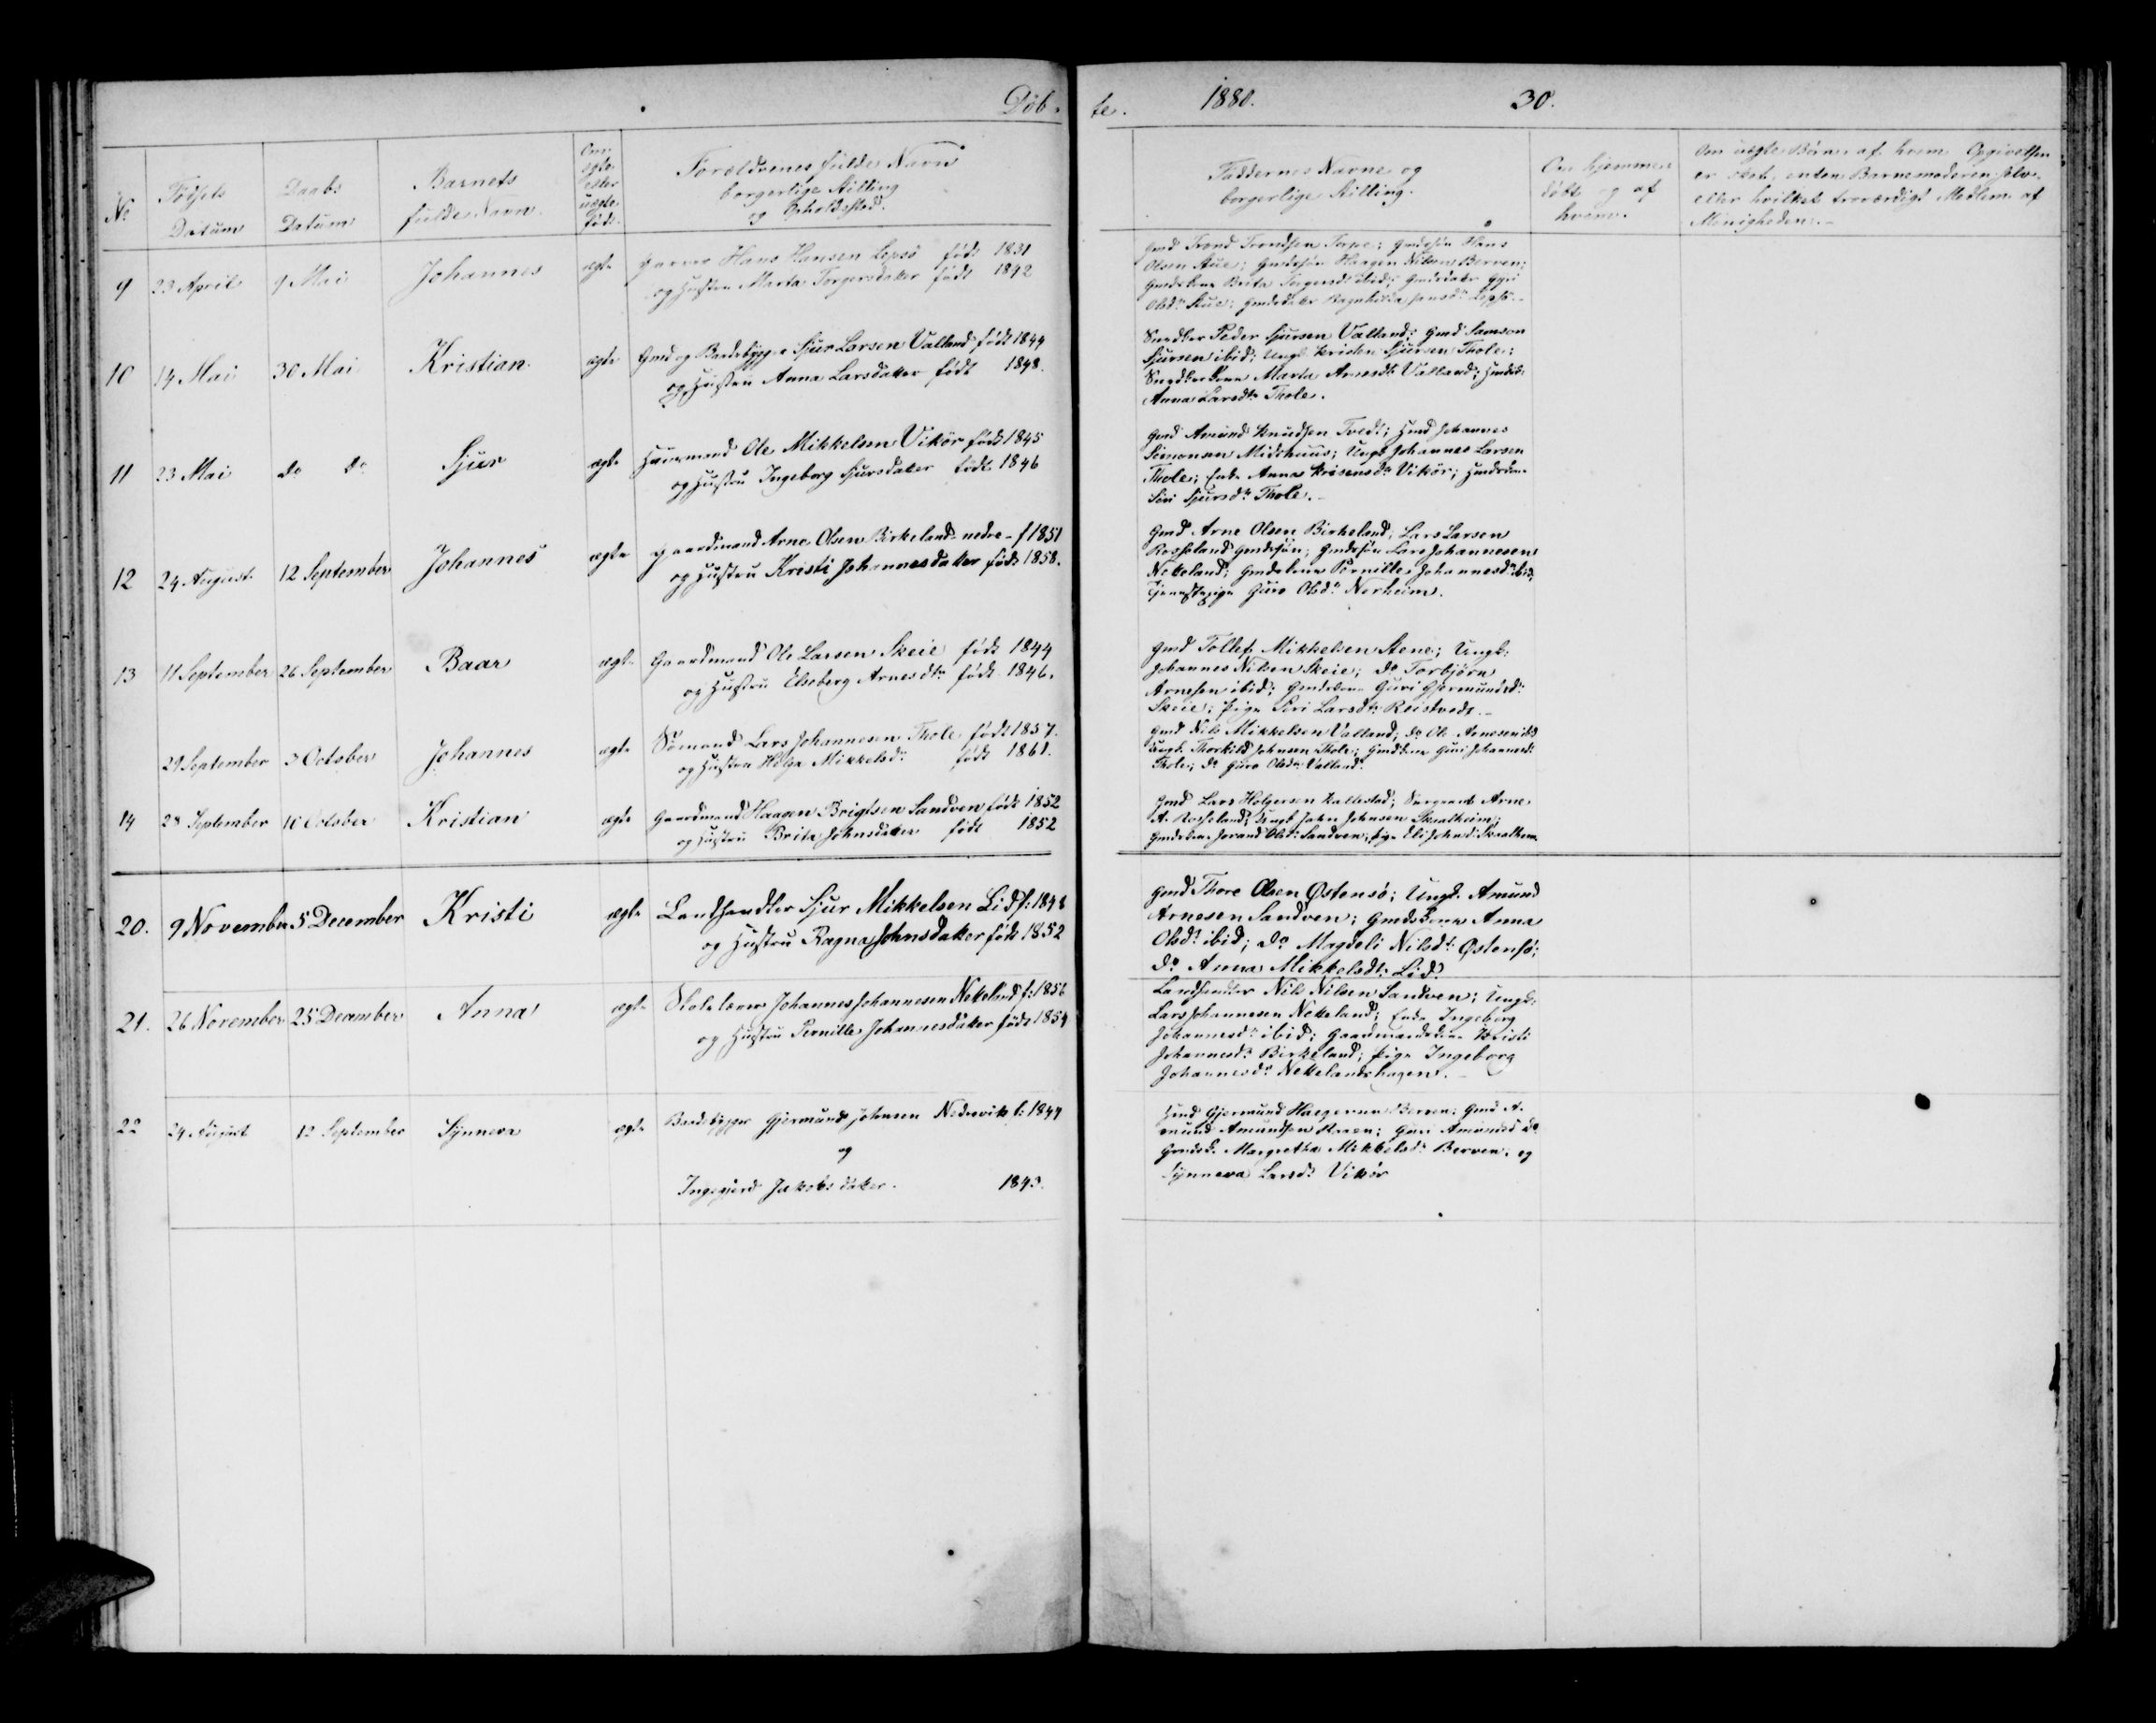 Döb.
te. 1880. 30.
No
Födsels
Datum
Daabs
Datum
Barnets
fulde Navn.
Om
ægte
eller
uægte
födt.
Forældrenes fulde Navn
borgerlige Stilling
og Opholdssted.
Faddernes Navne og
borgerlige Stilling.
Om hjemme
döbt og af
hvem.
Om uægte Börn, af hvem Opgivelsen
er sket, enten Barnemoderen selv
eller hvilket troværdigt Medlem af
Menigheden.
9 23 April 9 Mai Johannes ægte Hans Hansen Lepsö födt 1831
og Hustru Marta Torgersdatter födt 1842
Gmd Trond Trondsen Torpe; Gmdssön Hans
Olsen Aue; Gmdssön Haagen Nilsen Berven;
Gmdskone Brita Torgersdr ibid; Gmdsdatter
Olsdr Aue; Gmdsdatter Ragnhilda Hansdr Lepsö.
10 14 Mai 30 Mai Kristian ægte Gmd og Baadebygger Sjur Larsen Valland födt 1844
og Hustru Anna Larsdatter födt 1848.
Snedker Peder Sjursen Valland; Gmd Samson
Sjursen ibid; Ungk. Kristen Sjursen Thole;
Snedkerkone Marta Arnesdr Valland;
Anna Larsdtr Thole.
11 23 Mai do do Sjur ægte Huusmand Ole Mikkelsen Vikör födt 1845
og Hustru Ingeborg Sjursdatter födt 1846
Gmd Amund Knudsen Tvedt; Hmd Johannes
Simonsen Midthuus; Ungk Johannes Larsen
Thole; Enke Anna Vikör;
Siri Sjursdr Thole.
12 24 August 12 September Johannes ægte Gaardmand Arne Olsen Birkeland nedre f 1851
og Hustru Kristi Johannesdatter födt 1858.
Gmd Arne Olsen Birkeland; Lars Larsen
Rosseland Gmdssön; Gmdssön Lars Johannesen
Nekeland; Gmdskone Pernille Johannesdr ibid;
Tjenestepige Guro Olsdr Norheim.
13 11 September 26 September Baar ægte Gaardmand Ole Larsen Skeie födt 1844
og Hustru Elseberg Arnesdtr födt 1846.
Gmd Tollef Mikkelsen Stene; Ungk.
Johannes Nilsen Skeie; do Torbjörn
Arnesen ibid; Gmdskone Guri Gjermundsdr
Skeie; Pige Siri Larsdtr Reistvedt.
29 September 3 October Johannes ægte Sömand Lars Johannesen Thole födt 1857.
og Hustru Helga Mikkelsdr födt 1861.
Gmd Nils Mikkelsen Valland; do Ole Arnesen ibid
Ungk. Thorkild Johnsen Thole; Gmdskone Guri Johannesdr
Thole; do Guro Olsdr Valland.
14 28 September 10 October Kristian ægte Gaardmand Haagen Brigtsen Sandven födt 1852
og Hustru Brita Johnsdatter födt 1852
Gmd Lars Holgersen Kallestad; Sergeant Arne
A. Rosseland; Ungk John Johnsen Skaalheim;
Gmdskone Jorand Olsdr Sandven; Pige Eli Johnsdr Skaalheim
20. 9 November 5 December Kristi ægte Landhandler Sjur Mikkelsen Lid f: 1848
og Hustru Ragna Johnsdatter födt 1852
Gmd Thore Olsen Østensø; Ungk. Amund
Arnesen Sandven; Gmdskone Anna
Olsdr ibid; do Magdeli Nilsdr Østensø;
do Anna Mikkelsdtr Lid.
21. 26 November 25 December Anna ægte Skolelærer Johannes Johannesen Nekeland f: 1856
og Hustru Pernille Johannesdatter födt 1854
Landhandler Nils Nilsen Sandven; Ungk.
Lars Johannesen Nekeland; Enke Ingeborg
Johannesdr ibid; Gaardmandskone Kristi
Johannesdr Birkeland; Pige Ingeborg
Johannesdr Nekelandshagen.
22 24 August 12 September Synneva ægte Baadebygger Gjermund Johnsen Nedrevik f: 1844
og
Ingegjerd Jakobsdatter. 1843.
Hmd Gjermund Haagensen Berven; Gmd A-
mund Amundsen Steen; Guri Amundsd do
Gmdsk. Margretha Mikkelsdr Berven, og
Synneva Larsdr Vikör